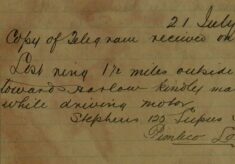 21 July
Copy of Telegram received on
Lost ring 1½ miles outside
towards Harlow kindly ma
while driving motor
Stephens 120 Lupus
Pimlico Lo